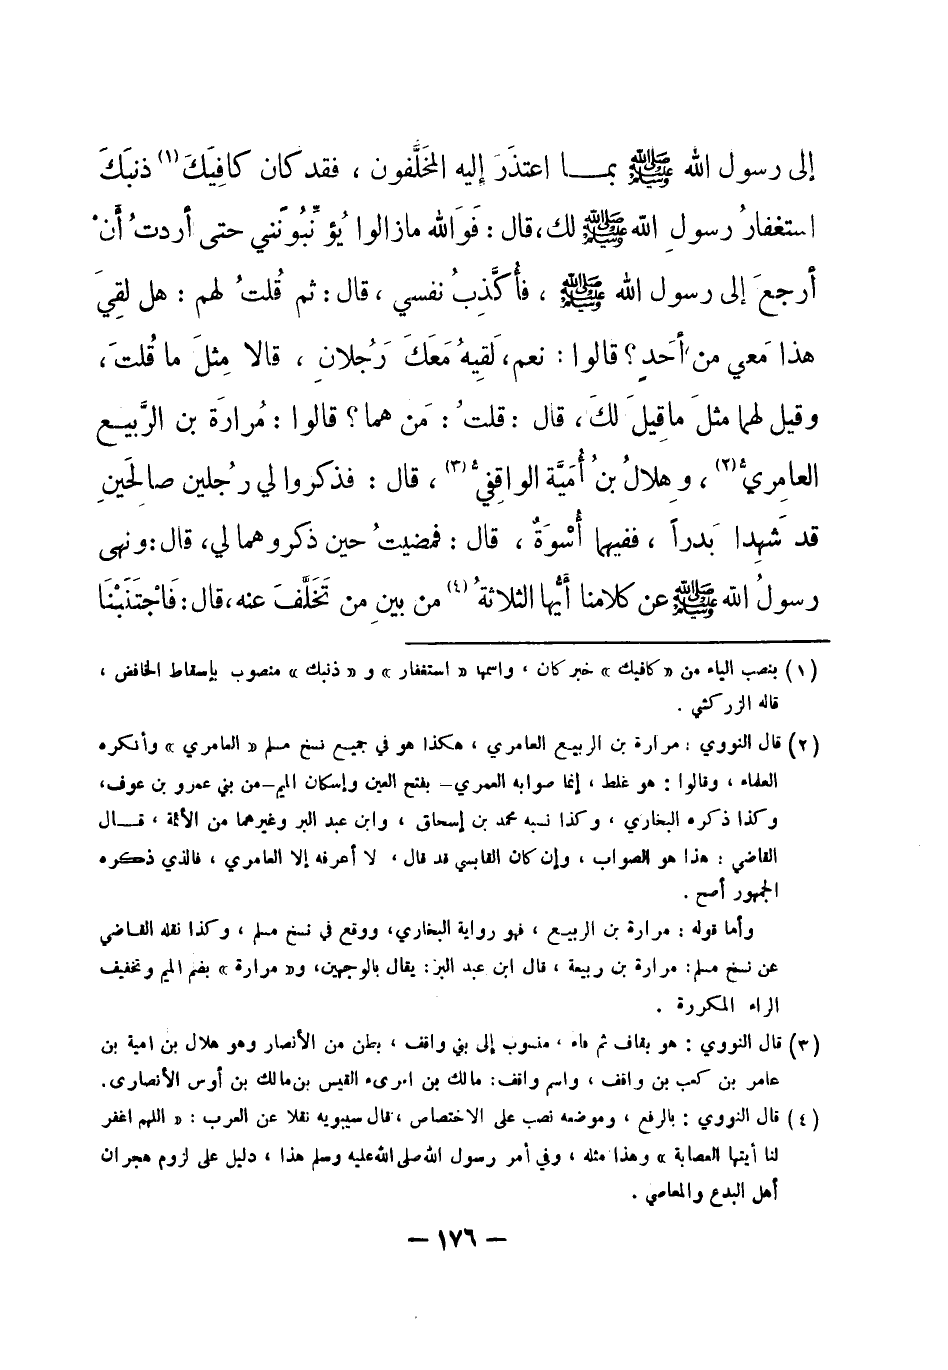 إلى رسول الله ﷺ بمـــا اعتذَرَ إليه المخَلَّفون ، فقد كان كافِيَكَ (١) ذنبَكَ
استغفارُ رسولِ اللهِ ﷺ لك، قال : فَوَالله مازالوا يُؤنِّبُونَني حتى أردتُ أنْ
أرجعَ إلى رسول الله ﷺ ، فأُكَذِّبُ نفسي ، قال : ثم قُلتُ لهم : هل لقِيَ
هذا مَعي من أحَدٍ ؟ قالوا : نعم، لَقِيهُ مَعَكَ رَجُلانِ ، قالا مِثلَ ما قُلتَ ،
وقيل لهما مثلَ ماقِيلَ لكَ، قال : قلتُ : مَن هما ؟ قالوا : مُرارَة بن الرَّبيـع
العامِريُّ (٢) ، وهِلالُ بنُ أُمَيَّة الواقِفيُّ (٣) ، قال : فذكروا لي رجُلين صالحَينِ
قد شَهِدا بَدراً ، ففيهما أُسْوَةٌ ، قال : فمضيتُ حين ذكروهما لي، قال : ونهى
رسولُ الله ﷺ عن كلامنا أيُّها الثلاثةُ (٤) من بين من تَخَلَّفَ عنه، قال : فَاجْتَنَبْنَا
(١) بنصب الياء من « كافيك » خبر كان ، واسمها « استغفار » و « ذنبك » منصوب بإسقاط الخافض ،
قاله الزركشي .
(٢) قال النووي : مرارة بن الربيع العامري ، هكذا هو في جميع نسخ مسلم « العامري » وأنكره
العلماء ، وقالوا : هو غلط ، إنما صوابه العمري – بفتح العين وإسكان الميم – من بني عمرو بن عوف،
وكذا ذكره البخاري ، وكذا نسبه محمد بن إسحاق ، وابن عبد البر وغيرهما من الأئمة ، قـــال
القاضي : هذا هو الصواب ، وإن كان القابسي قد قال ، لا أعرفه إلا العامري ، فالذي ذكره
الجمهور أصح .
وأما قوله : مرارة بن الربيع ، فهو رواية البخاري، ووقع في نسخ مسلم ، وكذا نقله القاضي
عن نسخ مسلم: مرارة بن ربيعة ، قال ابن عبد البر: يقال بالوجهين، و« مرارة » بضم الميم وتخفيف
الراء المكررة .
(٣) قال النووي : هو بقاف ثم فاء ، منسوب إلى بني واقف ، بطن من الأنصار وهو هلال بن امية بن
عامر بن كعب بن واقف ، واسم واقف: مالك بن امرىء القيس بن مالك بن أوس الأنصاري.
(٤) قال النووي : بالرفع ، وموضعه نصب على الاختصاص ، قال سيبويه نقلا عن العرب : « اللهم اغفر
لنا أيتها العصابة » وهذا مثله ، وفي أمر رسول الله صلى الله عليه وسلم هذا ، دليل على لزوم هجران
أهل البدع والمعاصي .
– ١٧٦ –